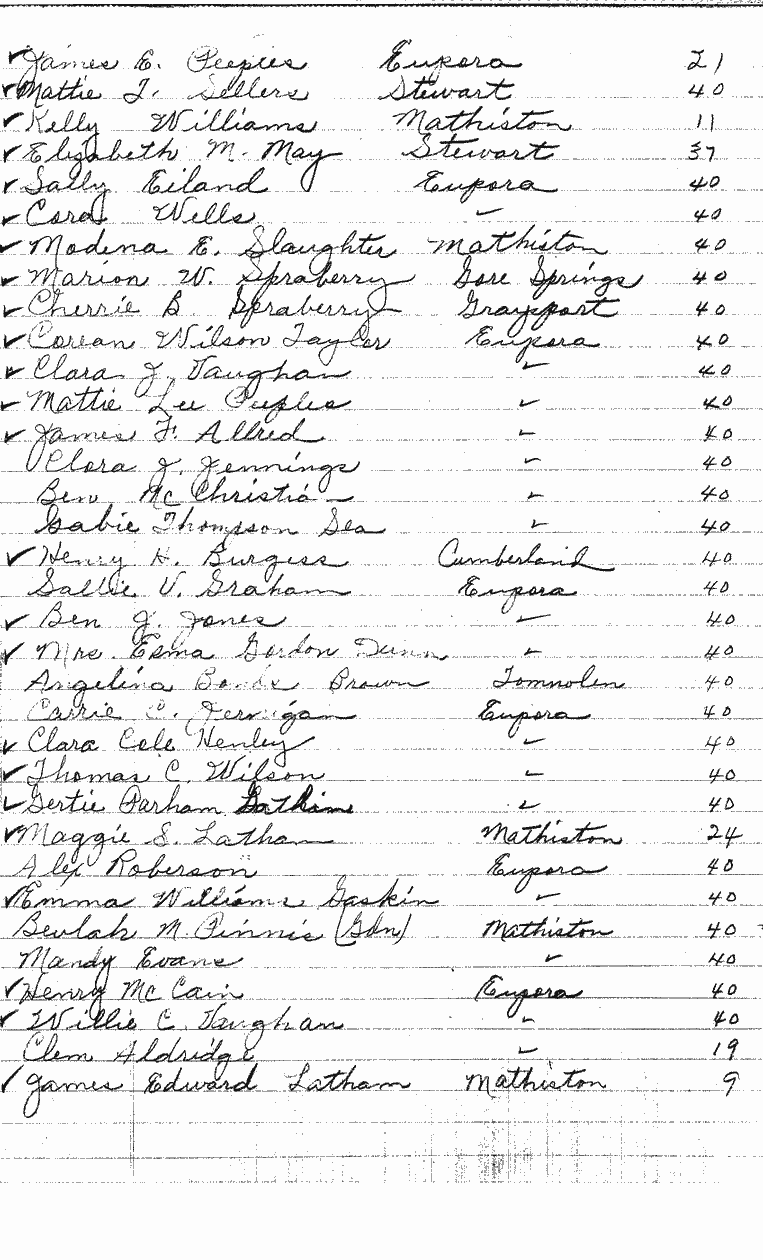 ✓ James E. Peeples Eupora 21
✓ Mattie T. Sellers Stewart 40
✓ Kelly Williams Mathiston 11
✓ Elizabeth M. May Stewart 37
✓ Sally Eiland Eupora 40
✓ Cora Wells " 40
✓ Modena E. Slaughter Mathiston 40
✓ Marion W. Spraberry Gore Springs 40
✓ Cherrie B Spraberry Graysport 40
✓ Corean Wilson Taylor Eupora 40
✓ Clara J. Vaughan " 40
✓ Mattie Lee Peeples " 40
✓ James F. Allred " 40
Clora J. Jennings " 40
Ben Mc Christia " 40
Gabie Thompson Sea " 40
✓ Henry H. Burgess Cumberland 40
Sallie V. Graham Eupora 40
✓ Ben J. Jones " 40
✓ Mrs. Esma Gordon Dunn " 40
Angelina Bonds Brown Tomnolen 40
Carrie C. Jernigan Eupora 40
✓ Clara Cole Henley " 40
✓ Thomas C. Wilson " 40
✓ Gertie Parham " 40
✓ Maggie S. Latham Mathiston 24
Alex Roberson Eupora 40
✓ Emma Williams Gaskin " 40
Beulah M. Pinnis (Gdn) Mathiston 40
Mandy Evans " 40
✓ Henry Mc Cain Eupora 40
✓ Willie C. Vaughan " 40
Clem Aldridge " 19
✓ James Edward Latham Mathiston 9